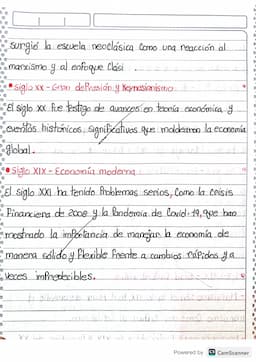 surgió la escuela neoclásica como una reacción al
marxismo y al enfoque Clási
• Siglo XX - Gran depresión y Keynesianismo
El siglo XX fue testigo de avances en teoría económica y
eventos históricos significativos que moldearon la economía
global.
• Siglo XIX - Economía moderna
El siglo XXI ha tenido Problemas serios, Como la Crisis
Financiera de 2008 y la Pandemia de Covid-19, que han
mostrado la importancia de manejar la economía de
manera sólida y Flexible Frente a cambios rápidos y a
veces impredecibles.
Powered by CS CamScanner